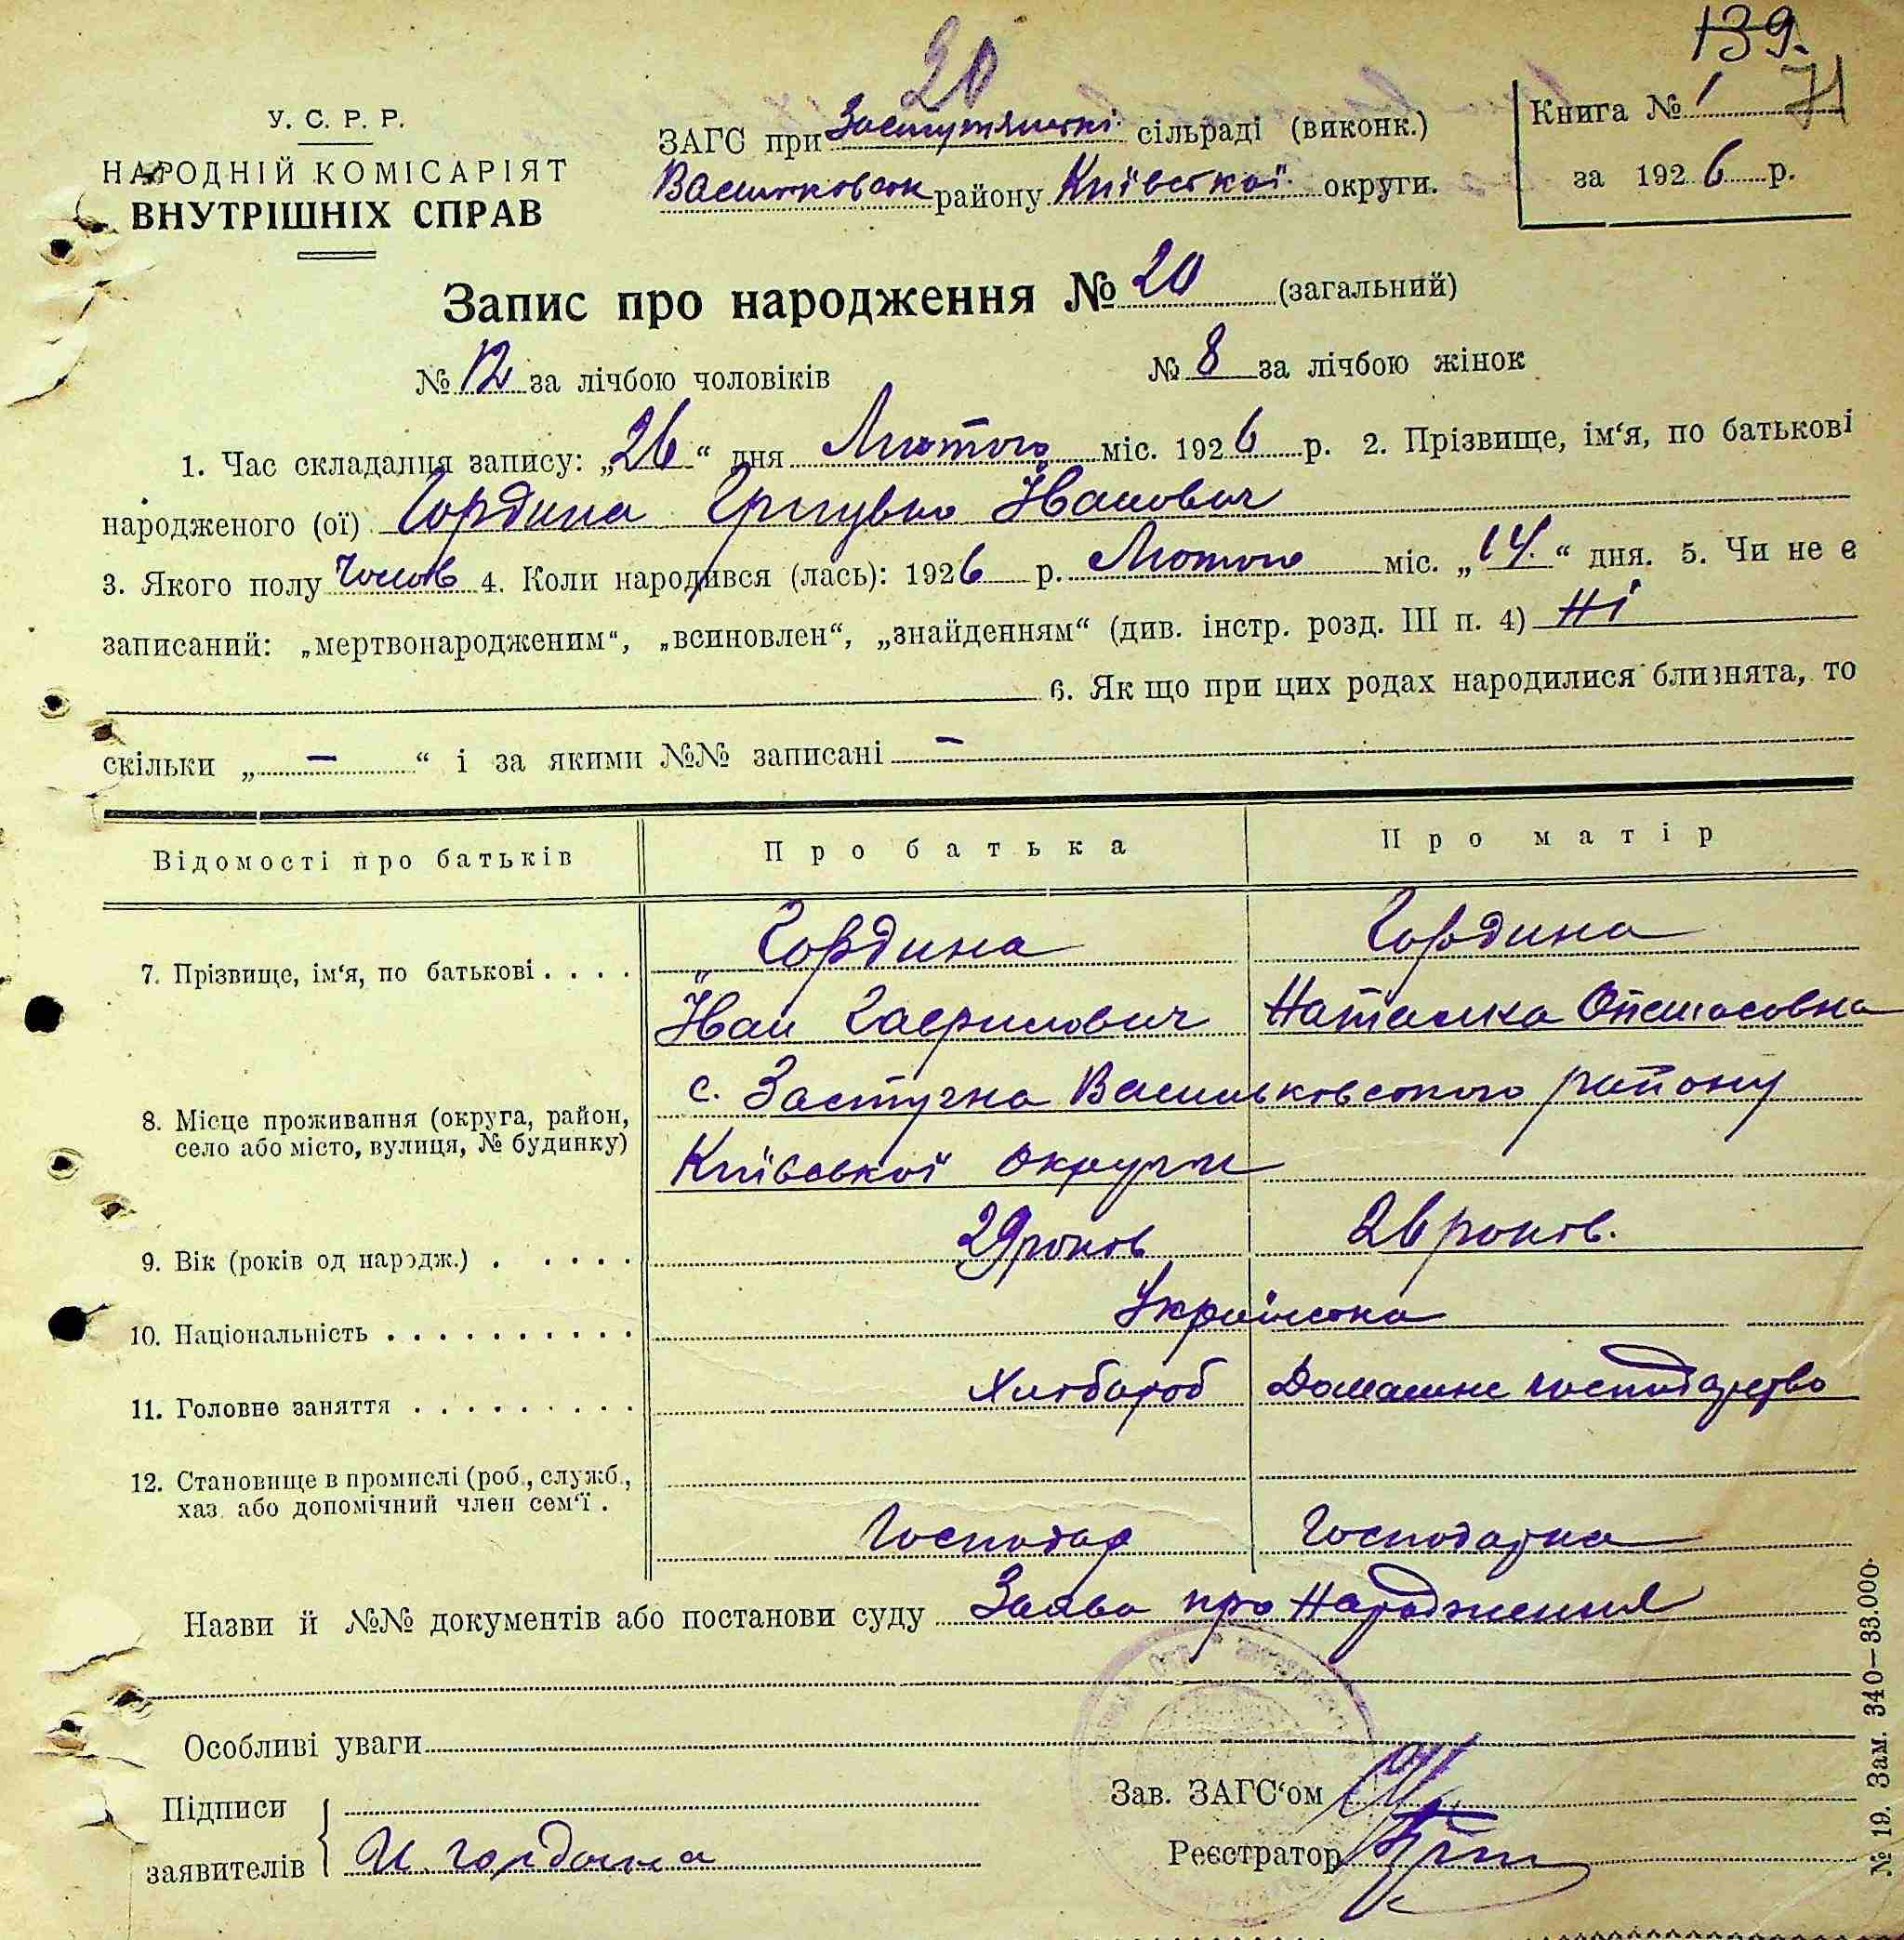 139.
71
20
У. С. Р. Р.
НАРОДНІЙ КОМІСАРІЯТ
ВНУТРІШНІХ СПРАВ
ЗАГС при Застугнянські сільраді (виконк.)
Васильковськ району Київської округи.
Книга № 1
за 1926 р.
Запис про народження № 20 (загальний)
№ 12 за лічбою чоловіків № 8 за лічбою жінок
1. Час складання запису: „26“ дня Лютого міс. 1926 р. 2. Прізвище, ім‘я, по батькові
народженого (ої) Гордина Іванович
3. Якого полу Чолов 4. Коли народився (лась): 1926 р. Лютого міс. „14.“ дня. 5. Чи не є
записаний: „мертвонародженим“, „всиновлен“, „знайденням“ (див. інстр. розд. III п. 4) Ні
6. Як що при цих родах народилися близнята, то
скільки „ – “ і за якими №№ записані –
Відомості про батьків Про батька Про матір
7. Прізвище, ім‘я, по батькові . . . . Гордина Гордина
Іван Гаврилович Наталка Опанасовна
8. Місце проживання (округа, район, село або місто, вулиця, № будинку) с. Застугна Васильковського району
Київської округи
9. Вік (років од нардж.) . . . . . 29 роков 26 роков.
10. Національність . . . . . . . . . . Українська
11. Головне заняття . . . . . . . . . Хлібороб Домашнє господарство
12. Становище в промислі (роб., служб., хаз. або допомічний член сем‘ї . Господар Господарка
Назви й №№ документів або постанови суду Заява про Народження
Особливі уваги
Підписи заявителів И. Гордина
Зав. ЗАГС‘ом
Реєстратор
№ 19. Зам. 340—33.000.